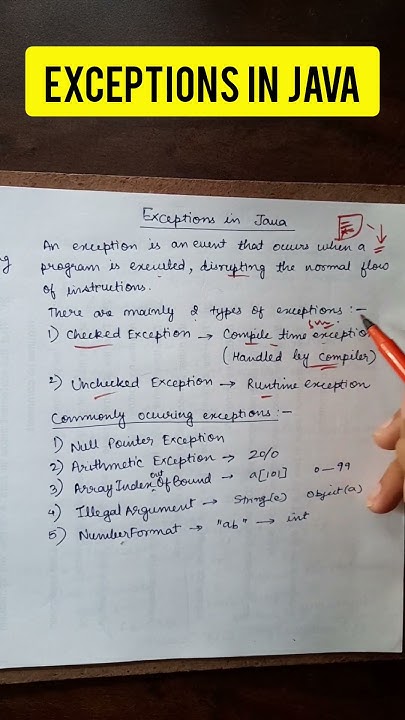 EXCEPTIONS IN JAVA
Exceptions in Java
An exception is an event that occurs when a
program is executed, disrupting the normal flow
of instructions.
There are mainly 2 types of exceptions :-
1) Checked Exception → Compile time exception
(Handled by compiler)
2) Unchecked Exception → Runtime exception
Commonly occuring exceptions :-
1) Null Pointer Exception
2) Arithmetic Exception → 20/0
3) ArrayIndex out Of Bound → a[101] 0-99
4) Illegal Argument → String(e) Object(a)
5) NumberFormat → "ab" → int